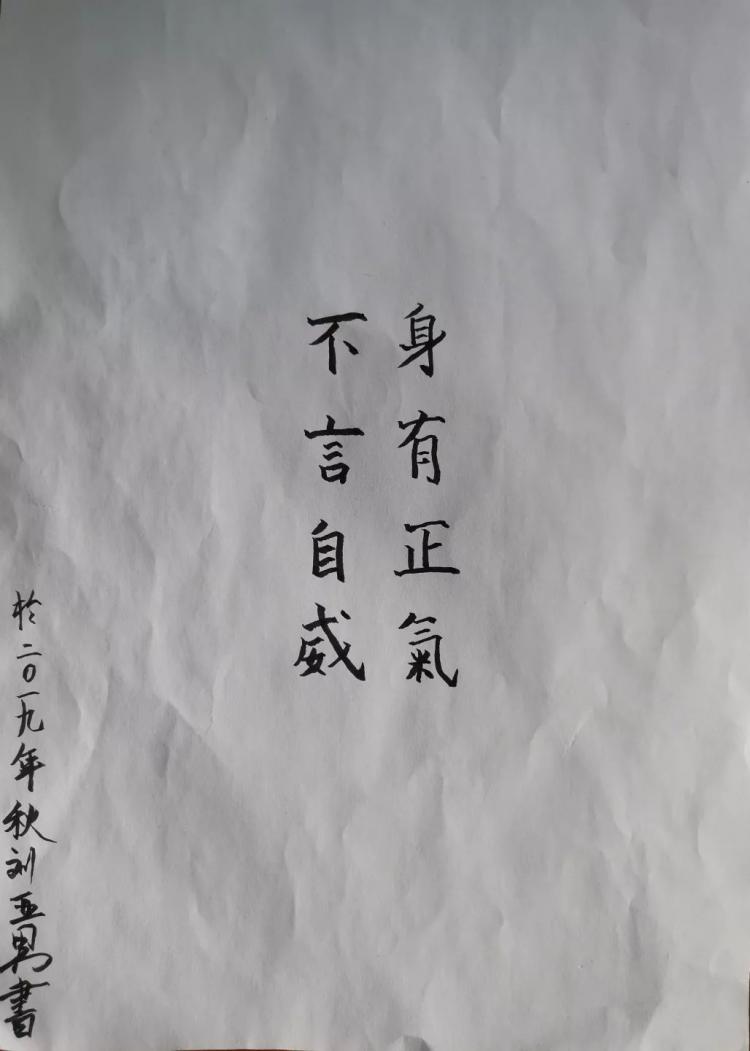 身有正氣
不言自威
於二〇一九年秋刘亚男書